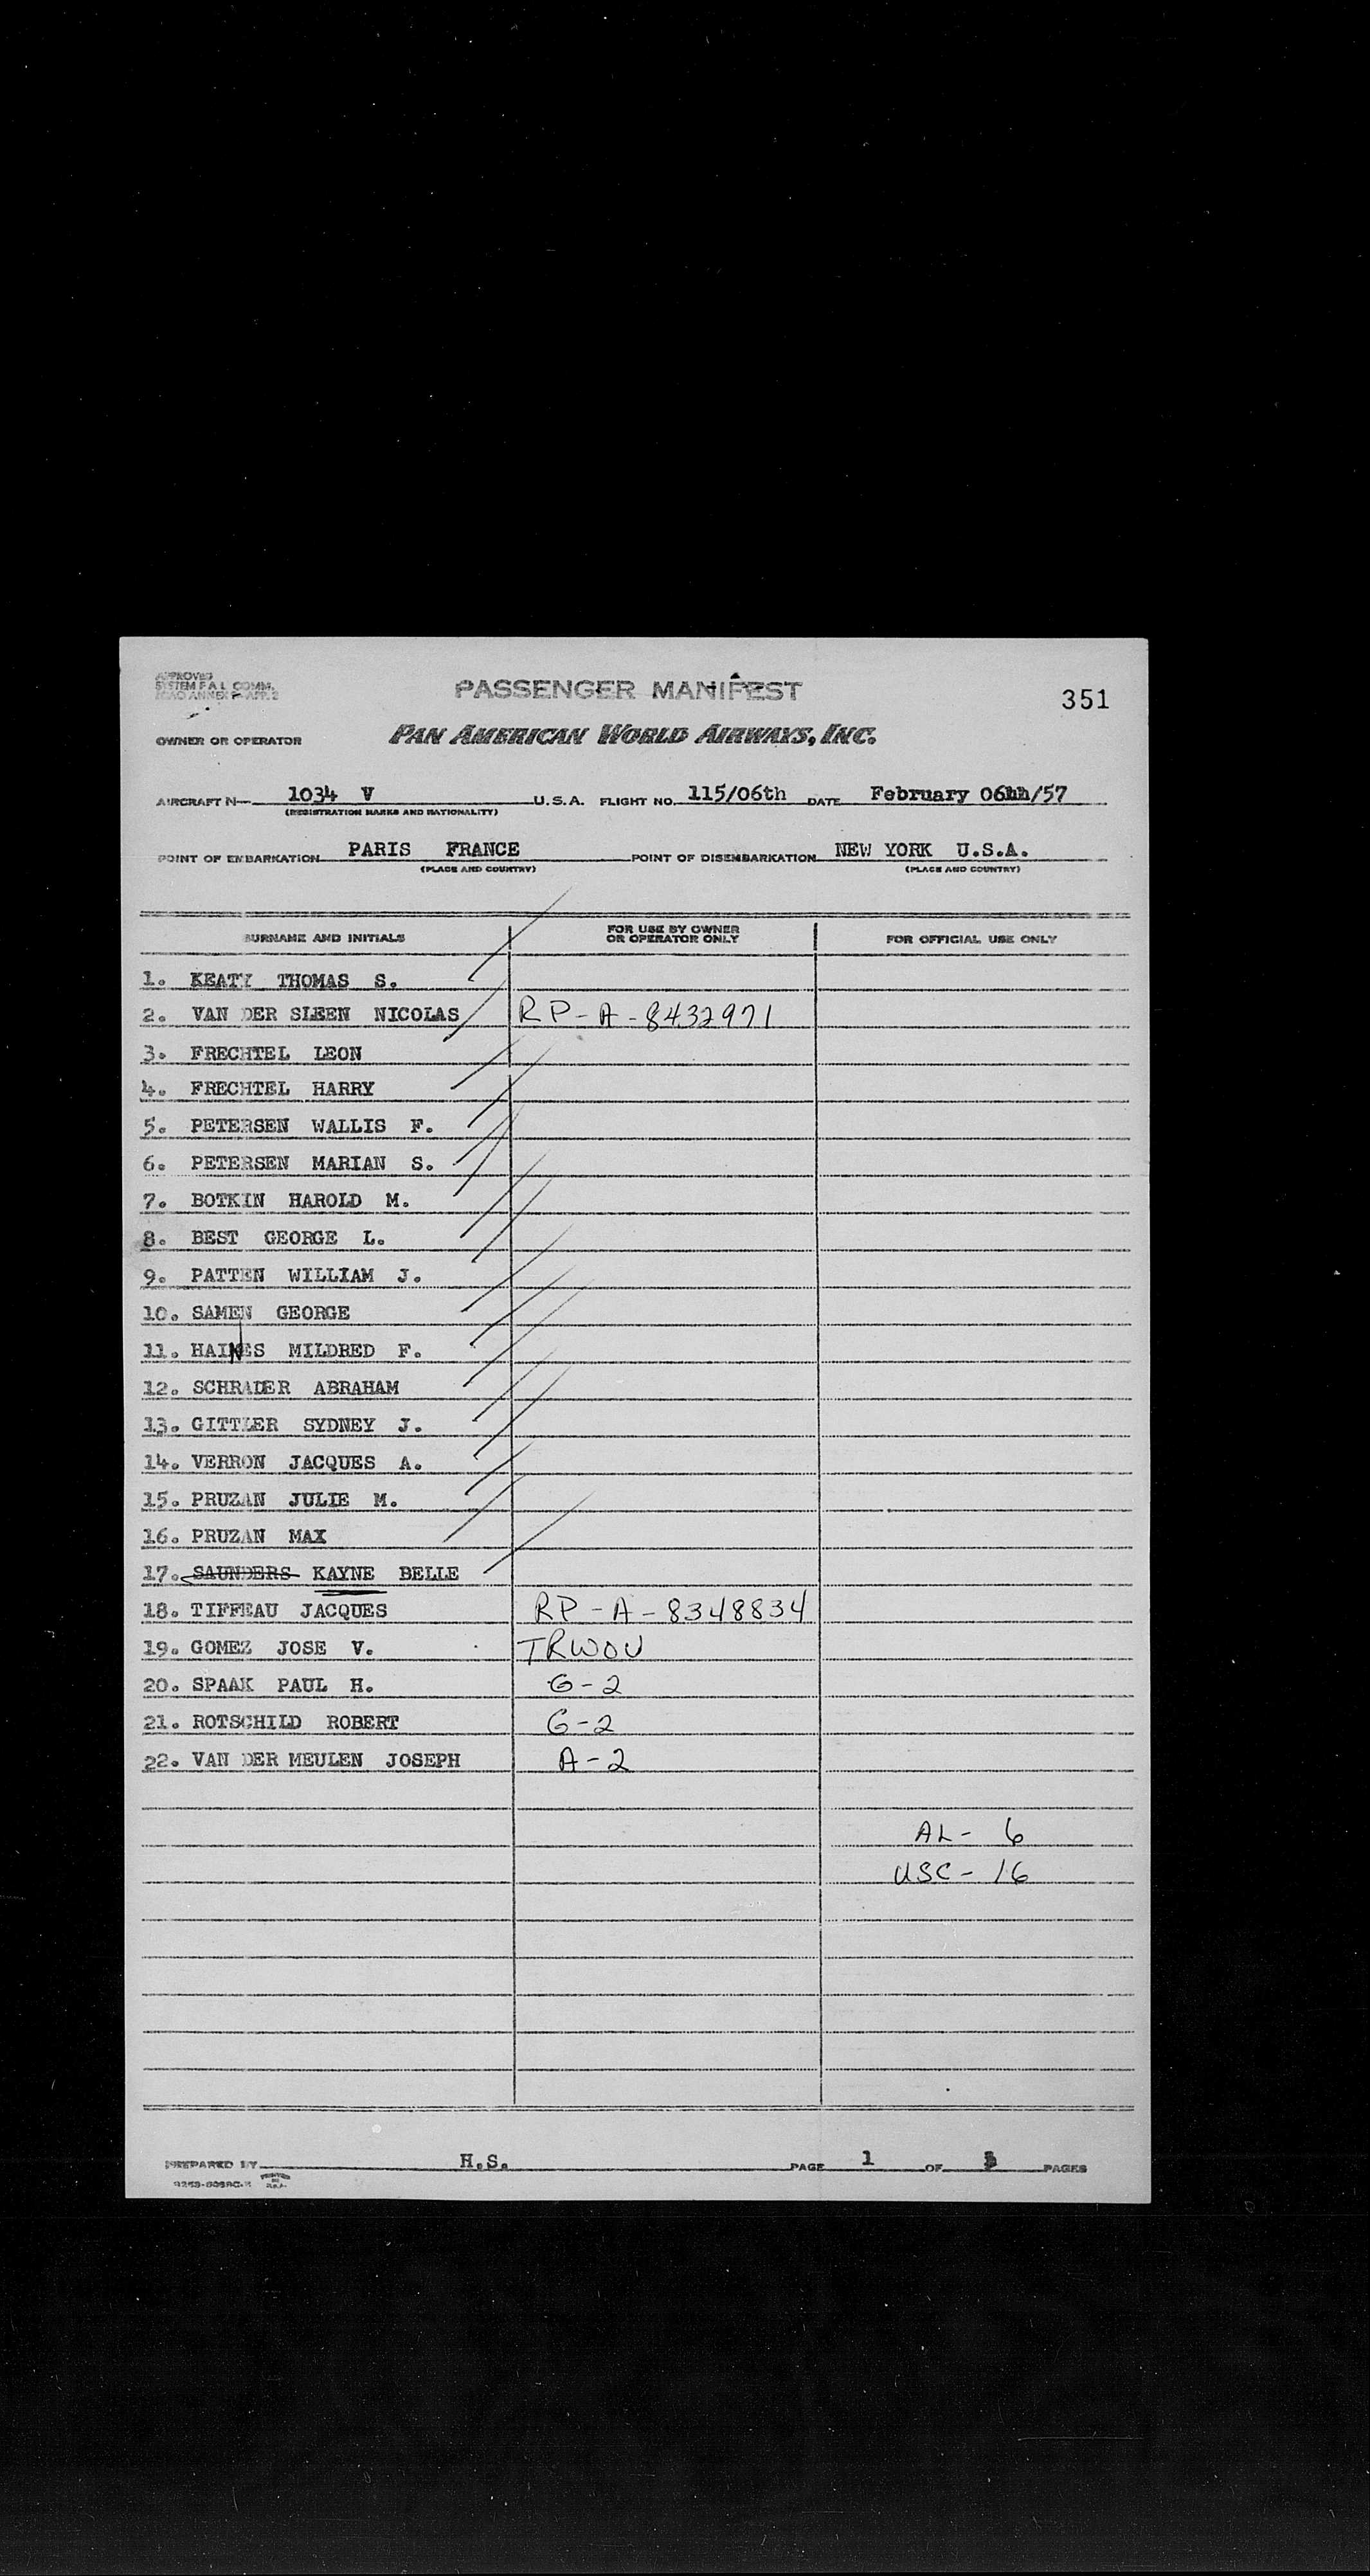 APPROVED
SYSTEM F A L COMM.
PASSENGER MANIFEST
351
OWNER OR OPERATOR PAN AMERICAN WORLD AIRWAYS, INC.
AIRCRAFT N— 1034 V U.S.A. FLIGHT NO. 115/06th DATE February 06hh/57
(REGISTRATION MARKS AND NATIONALITY)
POINT OF EMBARKATION PARIS FRANCE POINT OF DISEMBARKATION NEW YORK U.S.A.
(PLACE AND COUNTRY) (PLACE AND COUNTRY)
SURNAME AND INITIALS FOR USE BY OWNER OR OPERATOR ONLY FOR OFFICIAL USE ONLY
1. KEATY THOMAS S.
2. VAN DER SLEEN NICOLAS RP-A-8432971
3. FRECHTEL LEON
4. FRECHTEL HARRY
5. PETERSEN WALLIS F.
6. PETERSEN MARIAN S.
7. BOTKIN HAROLD M.
8. BEST GEORGE L.
9. PATTEN WILLIAM J.
10. SAMEN GEORGE
11. HAINES MILDRED F.
12. SCHRADER ABRAHAM
13. GITTLER SYDNEY J.
14. VERRON JACQUES A.
15. PRUZAN JULIE M.
16. PRUZAN MAX
17. SAUNDERS KAYNE BELLE
18. TIFFEAU JACQUES RP-A-8348834
19. GOMEZ JOSE V. TRWOV
20. SPAAK PAUL H. G-2
21. ROTSCHILD ROBERT G-2
22. VAN DER MEULEN JOSEPH A-2
AL- 6
USC- 16
PREPARED BY H.S. PAGE 1 OF PAGES